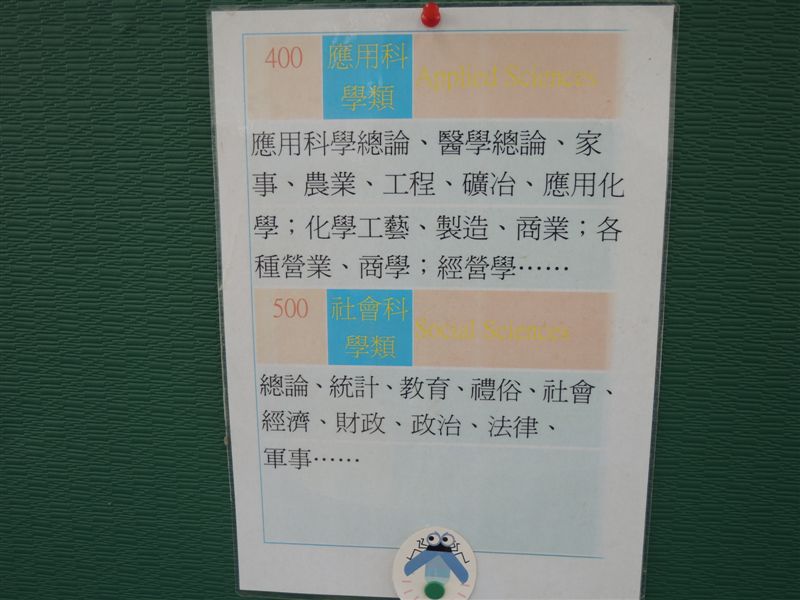 400
應用科
學類
Applied Sciences
應用科學總論、醫學總論、家
事、農業、工程、礦冶、應用化
學；化學工藝、製造、商業；各
種營業、商學；經營學……
500
社會科
學類
Social Sciences
總論、統計、教育、禮俗、社會、
經濟、財政、政治、法律、
軍事……